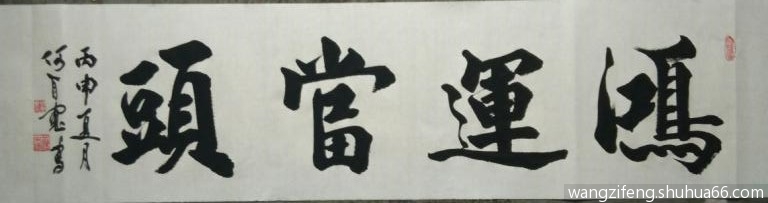 鴻運當頭
丙申夏月
wangzifeng.shuhua66.com